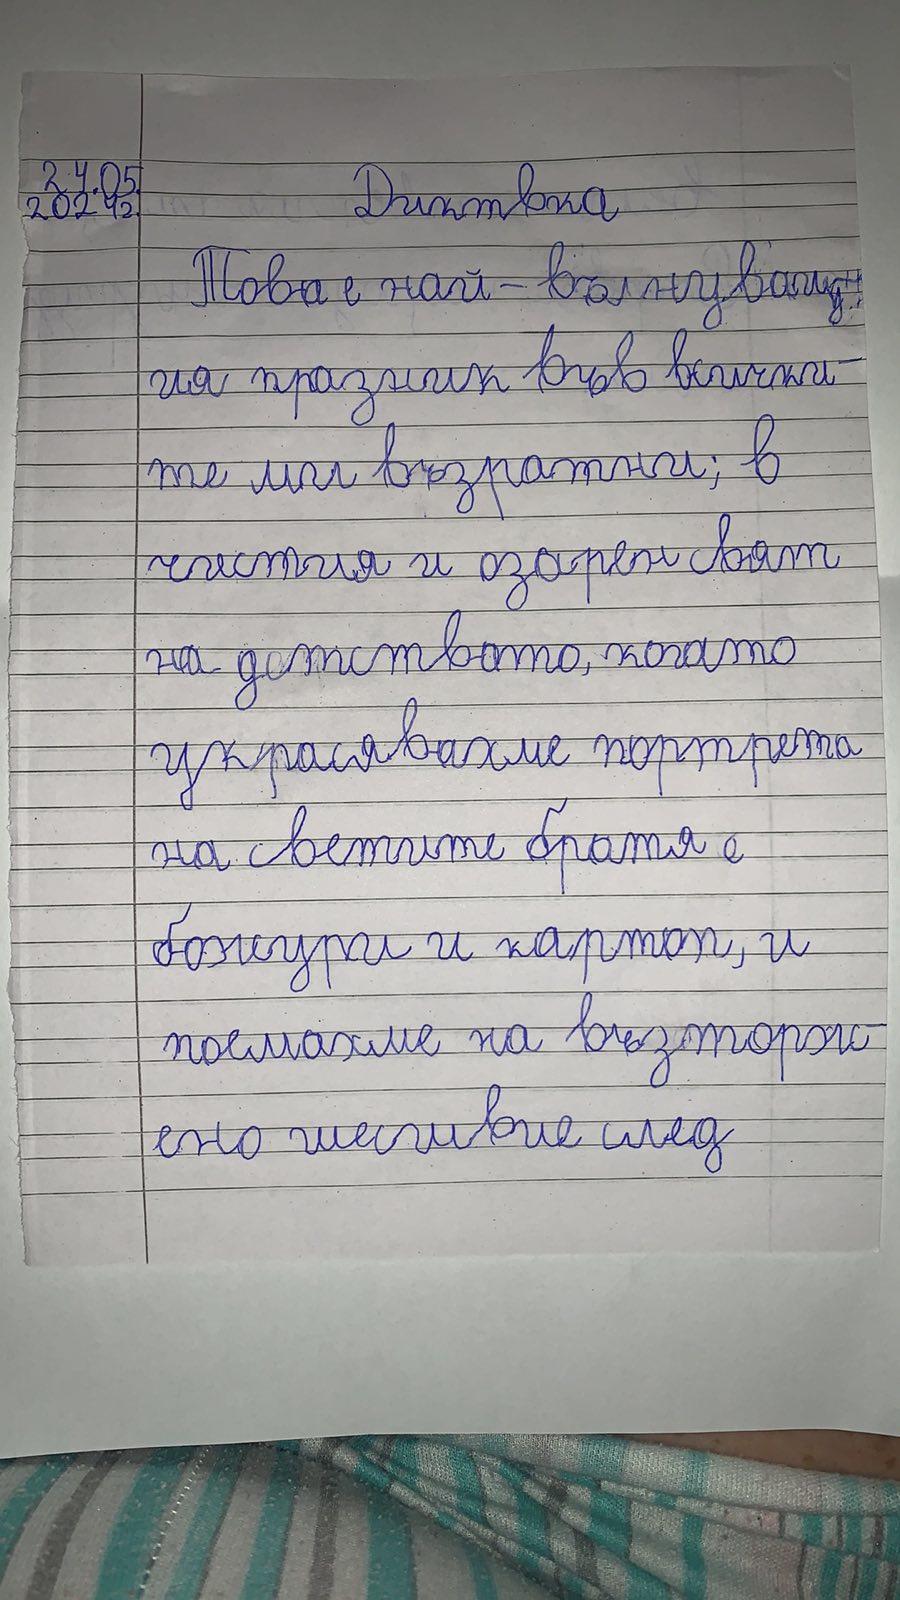 24.05
2024г.
Диктвка
Това е най-вълнуващ-
ия празник във всички-
те ми възратни; в
чистия и озарен свят
на детството, когато
украсявахме портрета
на светите братя с
божури и картоп, и
поемахме на възторж-
ено шествие след